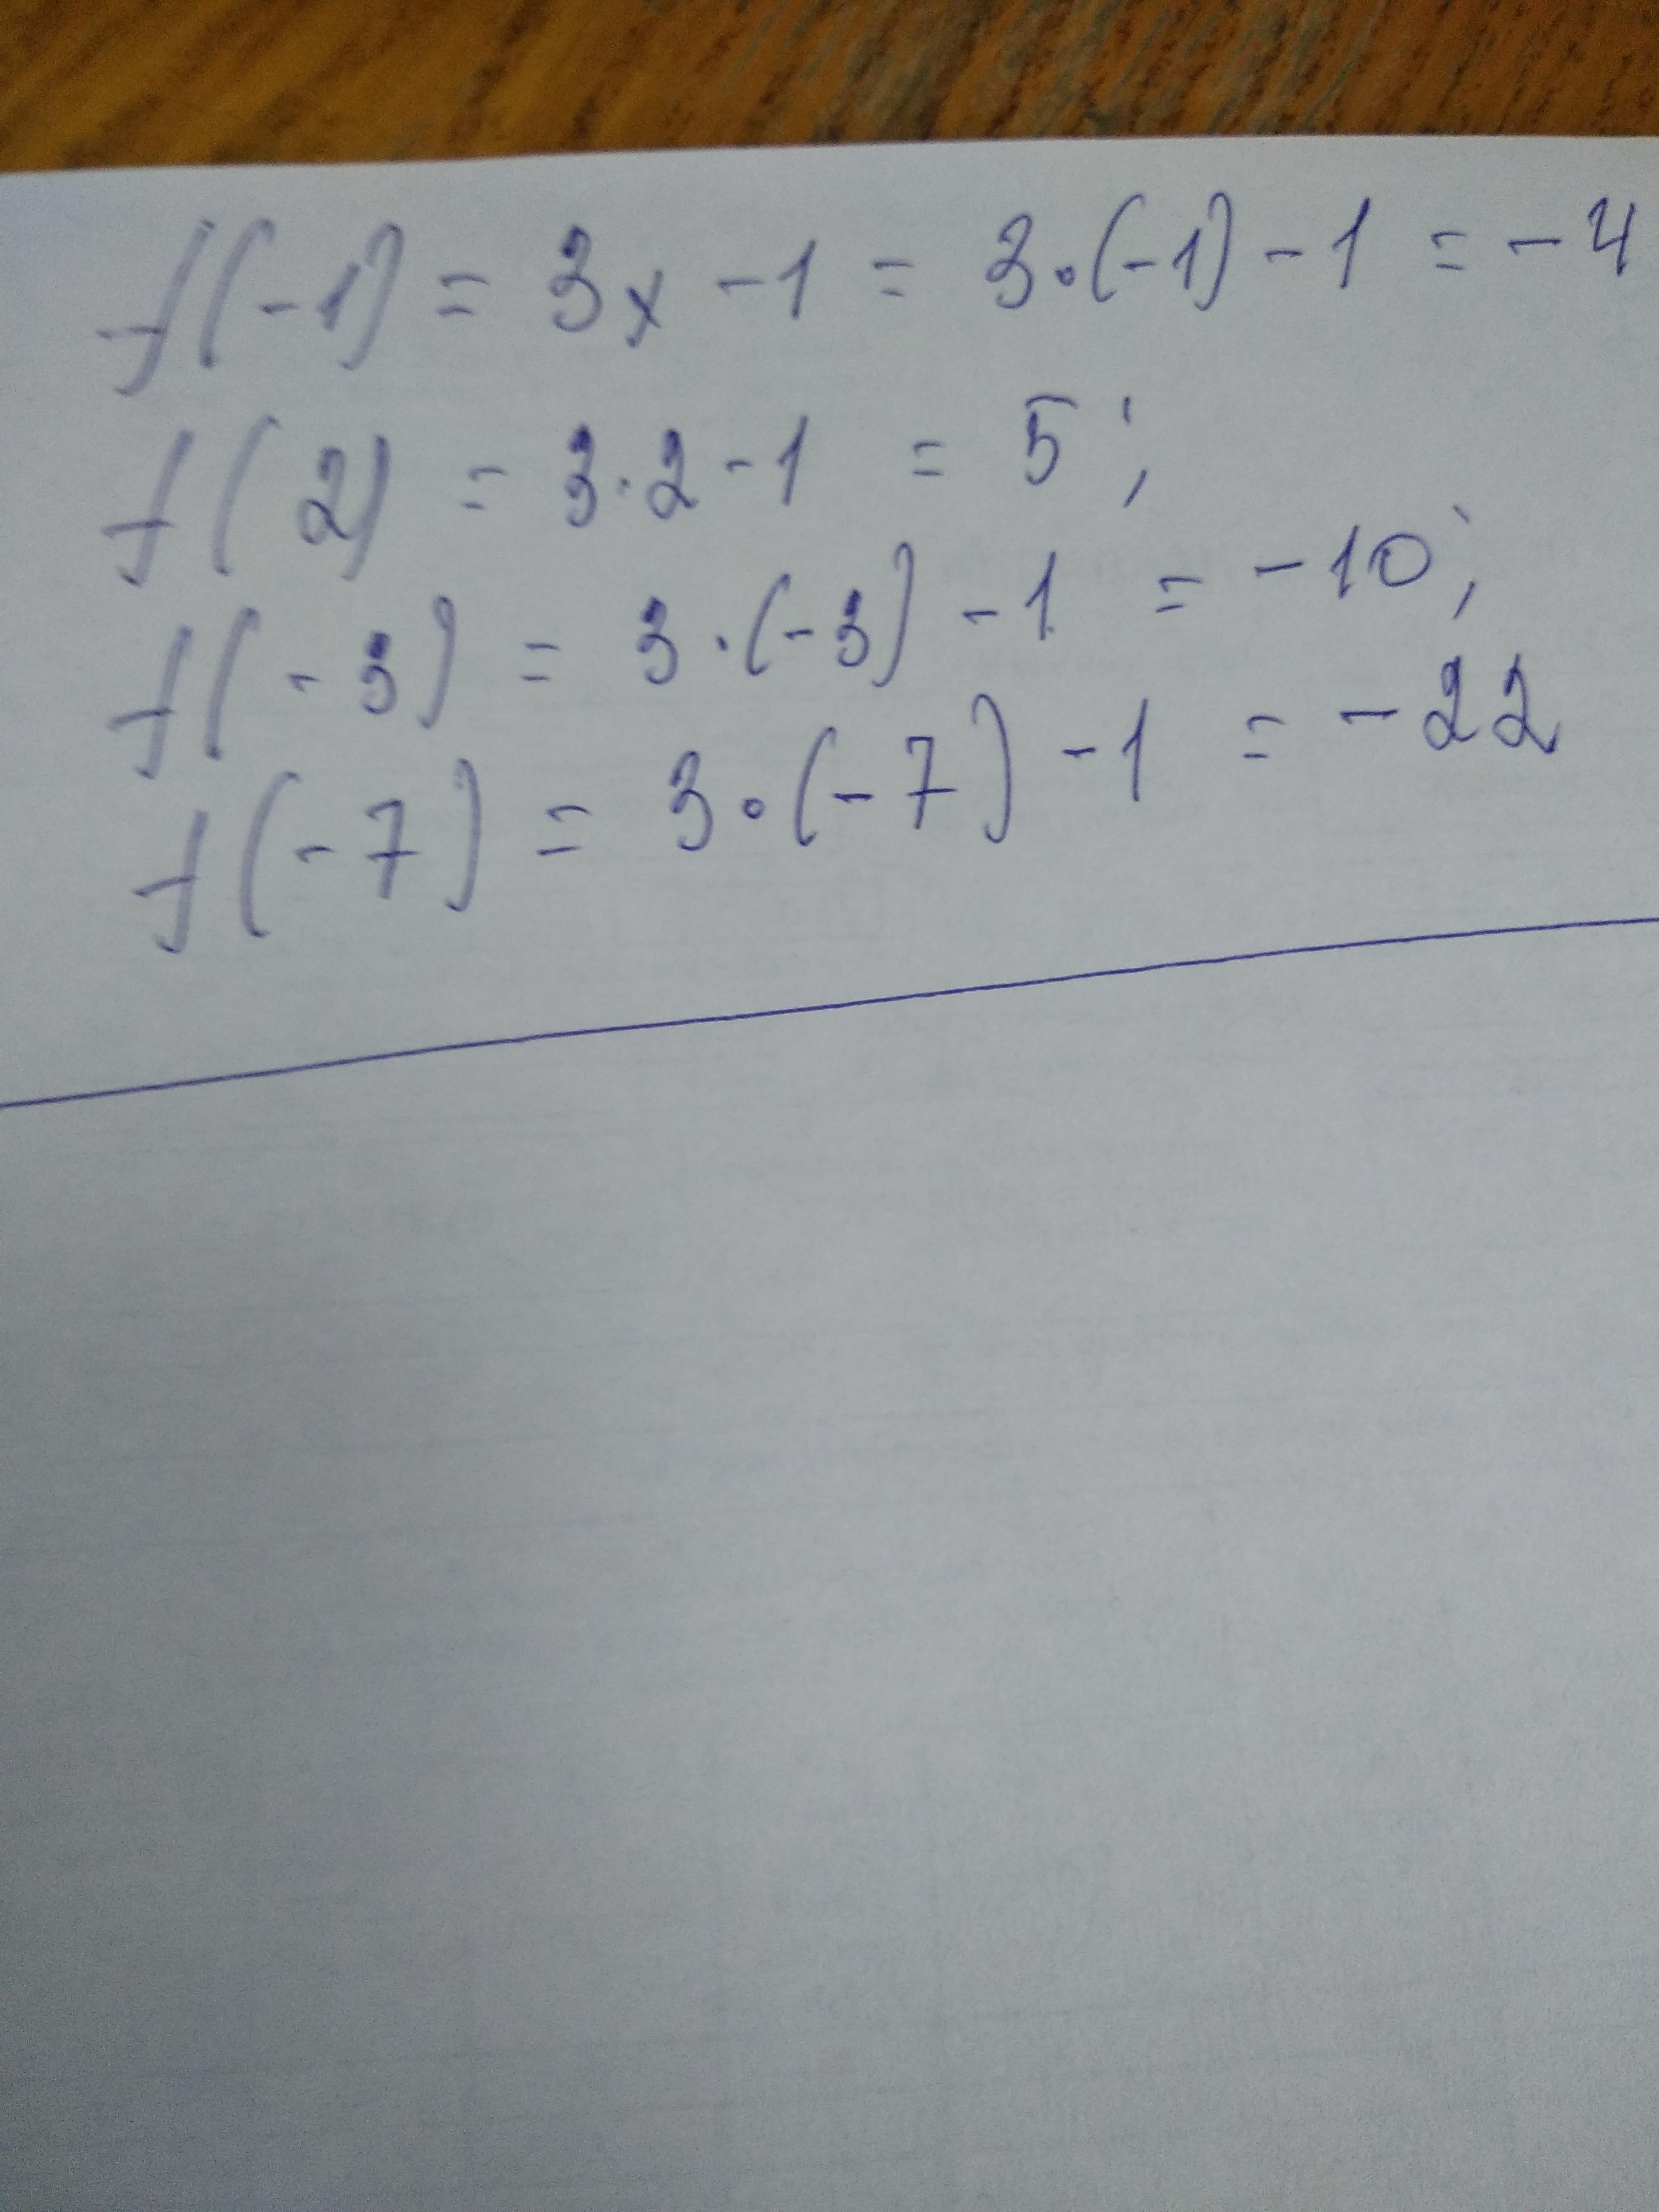 f(-1) = 3x - 1 = 3·(-1) - 1 = - 4
f(2) = 3·2 - 1 = 5;
f(-3) = 3·(-3) - 1 = - 10;
f(-7) = 3·(-7) - 1 = - 22